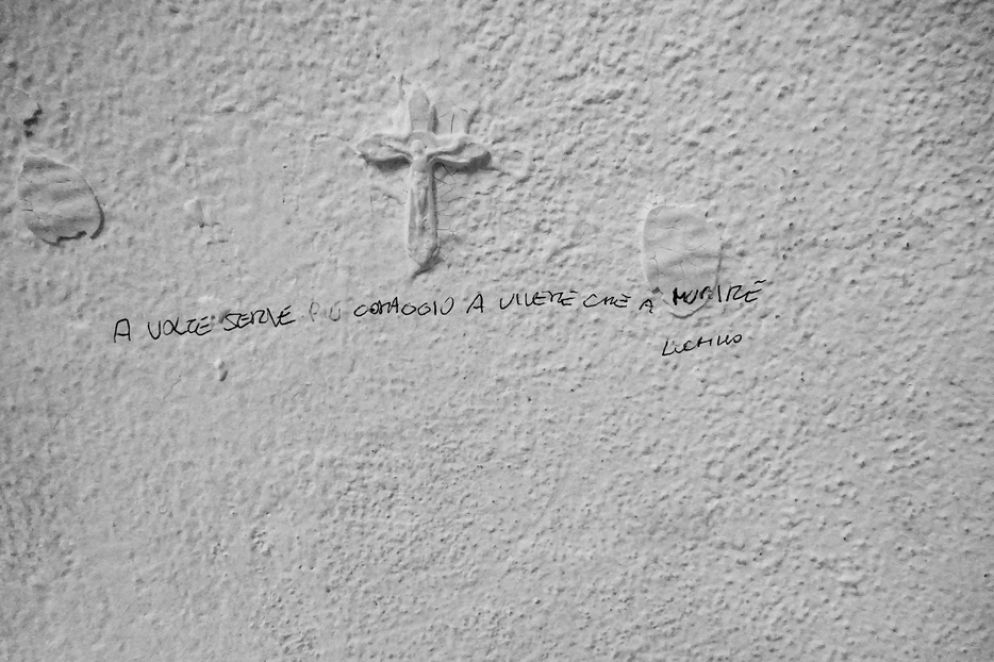 A VOLTE SERVE PIÙ CORAGGIO A VIVERE CHE A MORIRE